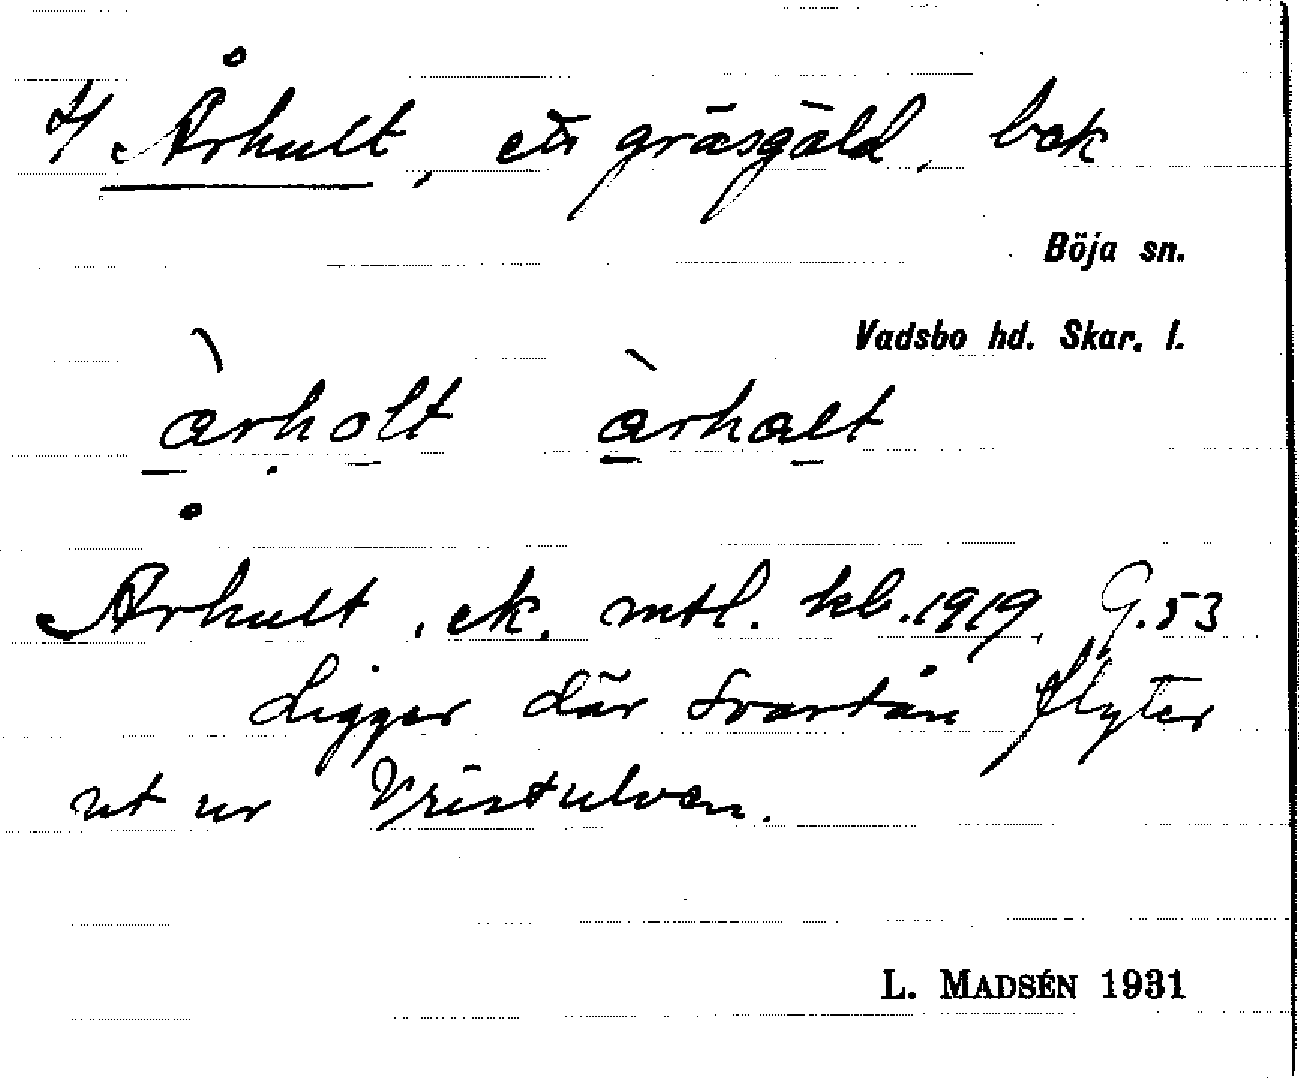 4/ Århult, ett gräsgäld, bok
Böja sn.
Vadsbo hd. Skar. l.
àrholt àrhalt
Århult, ek. mtl. kb. 1919. G. 53
Ligger där Svartån flyter
ut ur Vristulven.
L. MADSÉN 1931